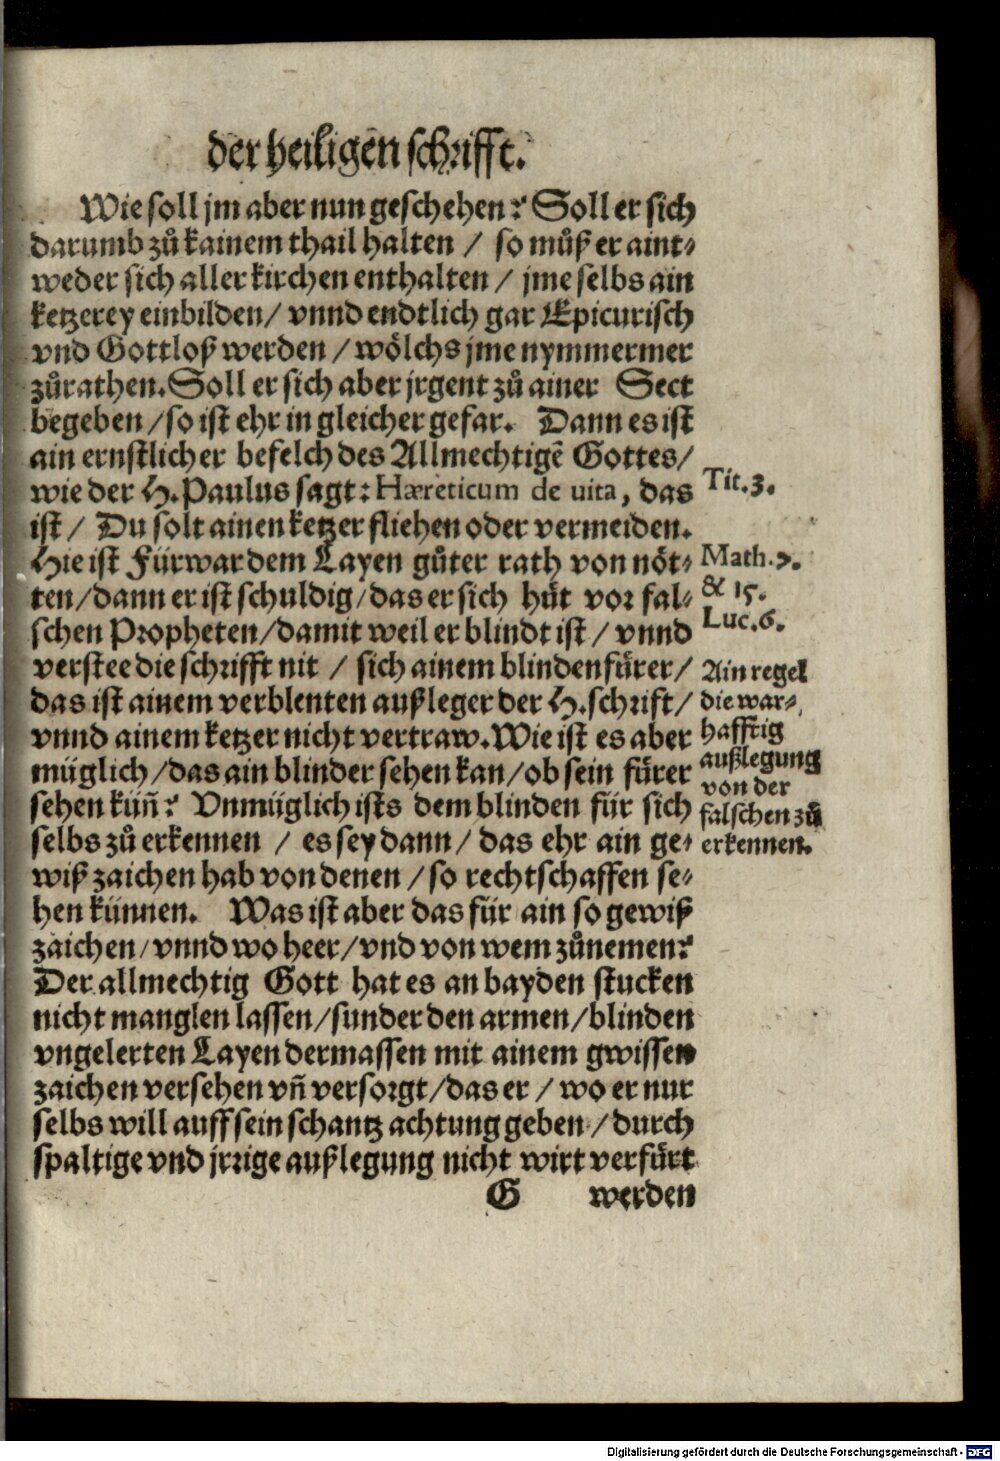 der heiligen schrifft.
Wie soll jm aber nun geschehen? Soll er sich
darumb zů kainem thail halten / so můß er aint-
weder sich aller kirchen enthalten / jme selbs ain
ketzerey einbilden / vnnd endtlich gar Epicurisch
vnd Gottloß werden / wölchs jme nymmermer
zůrathen. Soll er sich aber jrgent zů ainer Sect
begeben / so ist ehr in gleicher gefar. Dann es ist
ain ernstlicher befelch des Allmechtigẽ Gottes /
wie der H. Paulus sagt: Hæreticum de uita, das
ist / Du solt ainen ketzer fliehen oder vermeiden.
Hie ist Fürwar dem Layen gůter rath von nöt-
ten / dann er ist schuldig / das er sich hůt vor fal-
schen Propheten / damit weil er blindt ist / vnnd
verstee die schrifft nit / sich ainem blinden fůrer /
das ist ainem verblenten außleger der H. schrift /
vnnd ainem ketzer nicht vertraw. Wie ist es aber
müglich / das ain blinder sehen kan / ob sein fůrer
sehen küñ? Vnmüglich ists dem blinden für sich
selbs zů erkennen / es sey dann / das ehr ain ge-
wiß zaichen hab von denen / so rechtschaffen se-
hen künnen. Was ist aber das für ain so gewiß
zaichen / vnnd wo heer / vnd von wem zůnemen?
Der allmechtig Gott hat es an bayden stucken
nicht manglen lassen / sunder den armen / blinden
vngelerten Layen dermassen mit ainem gwissen
zaichen versehen vñ versorgt / das er / wo er nur
selbs will auff sein schantz achtung geben / durch
spaltige vnd jrrige außlegung nicht wirt verfůrt
G werden
Tit. 3.
Math. 7.
& 15.
Luc. 6.
Ain regel
die war-
hafftig
außlegung
von der
falschen zů
erkennen.
Digitalisierung gefördert durch die Deutsche Forschungsgemeinschaft - DFG